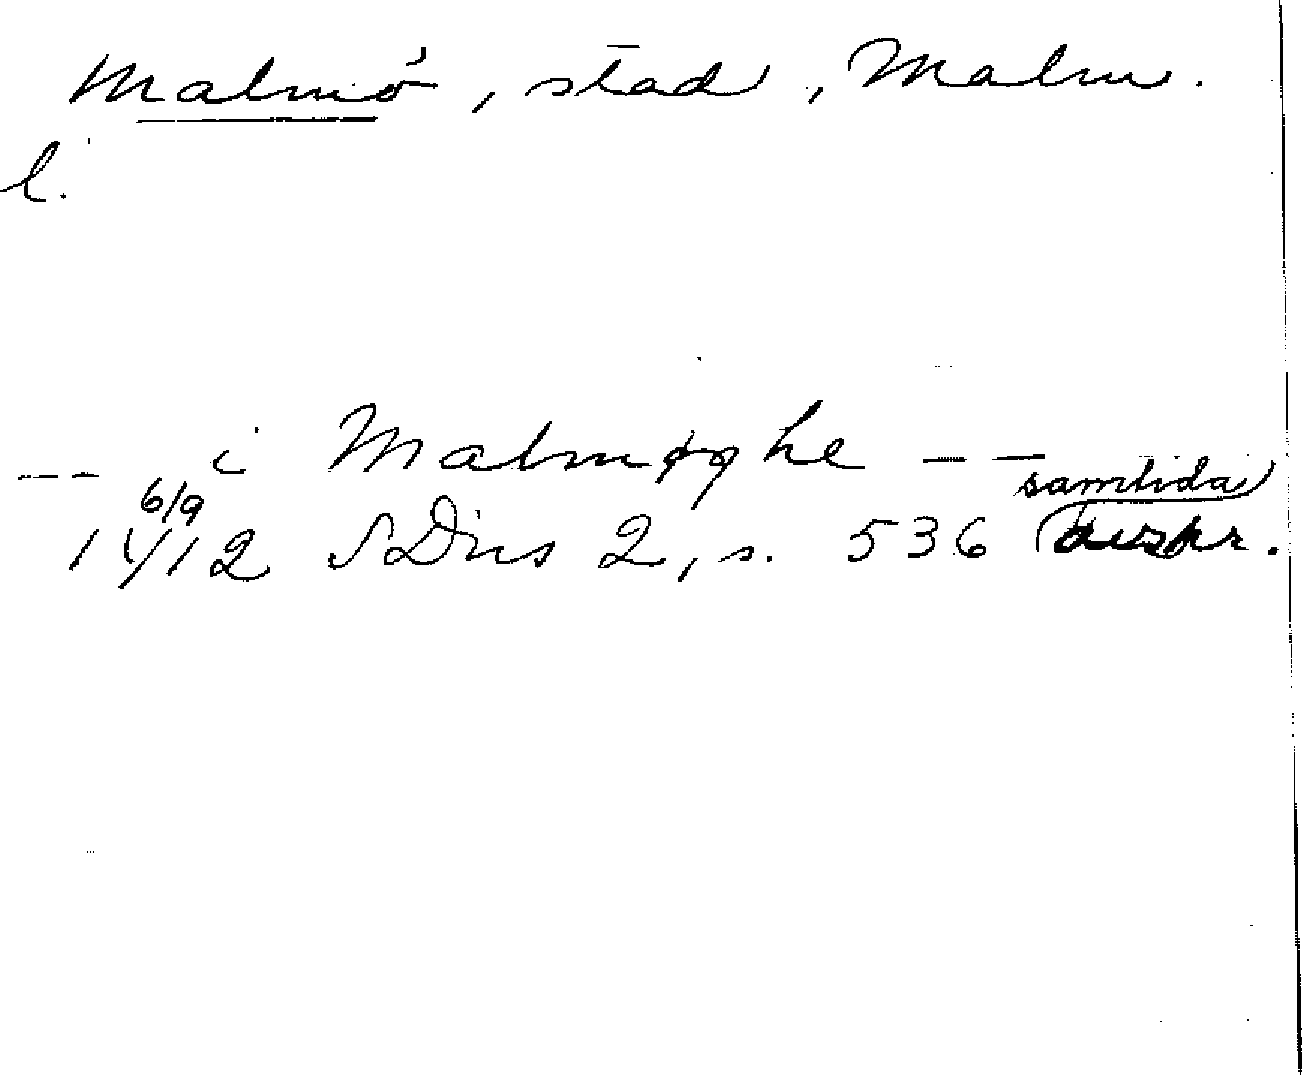 Malmö, stad, Malm.
l.
-- i Malmøghe --
6/9 1412 SDns 2, s. 536 samtida
avskr.